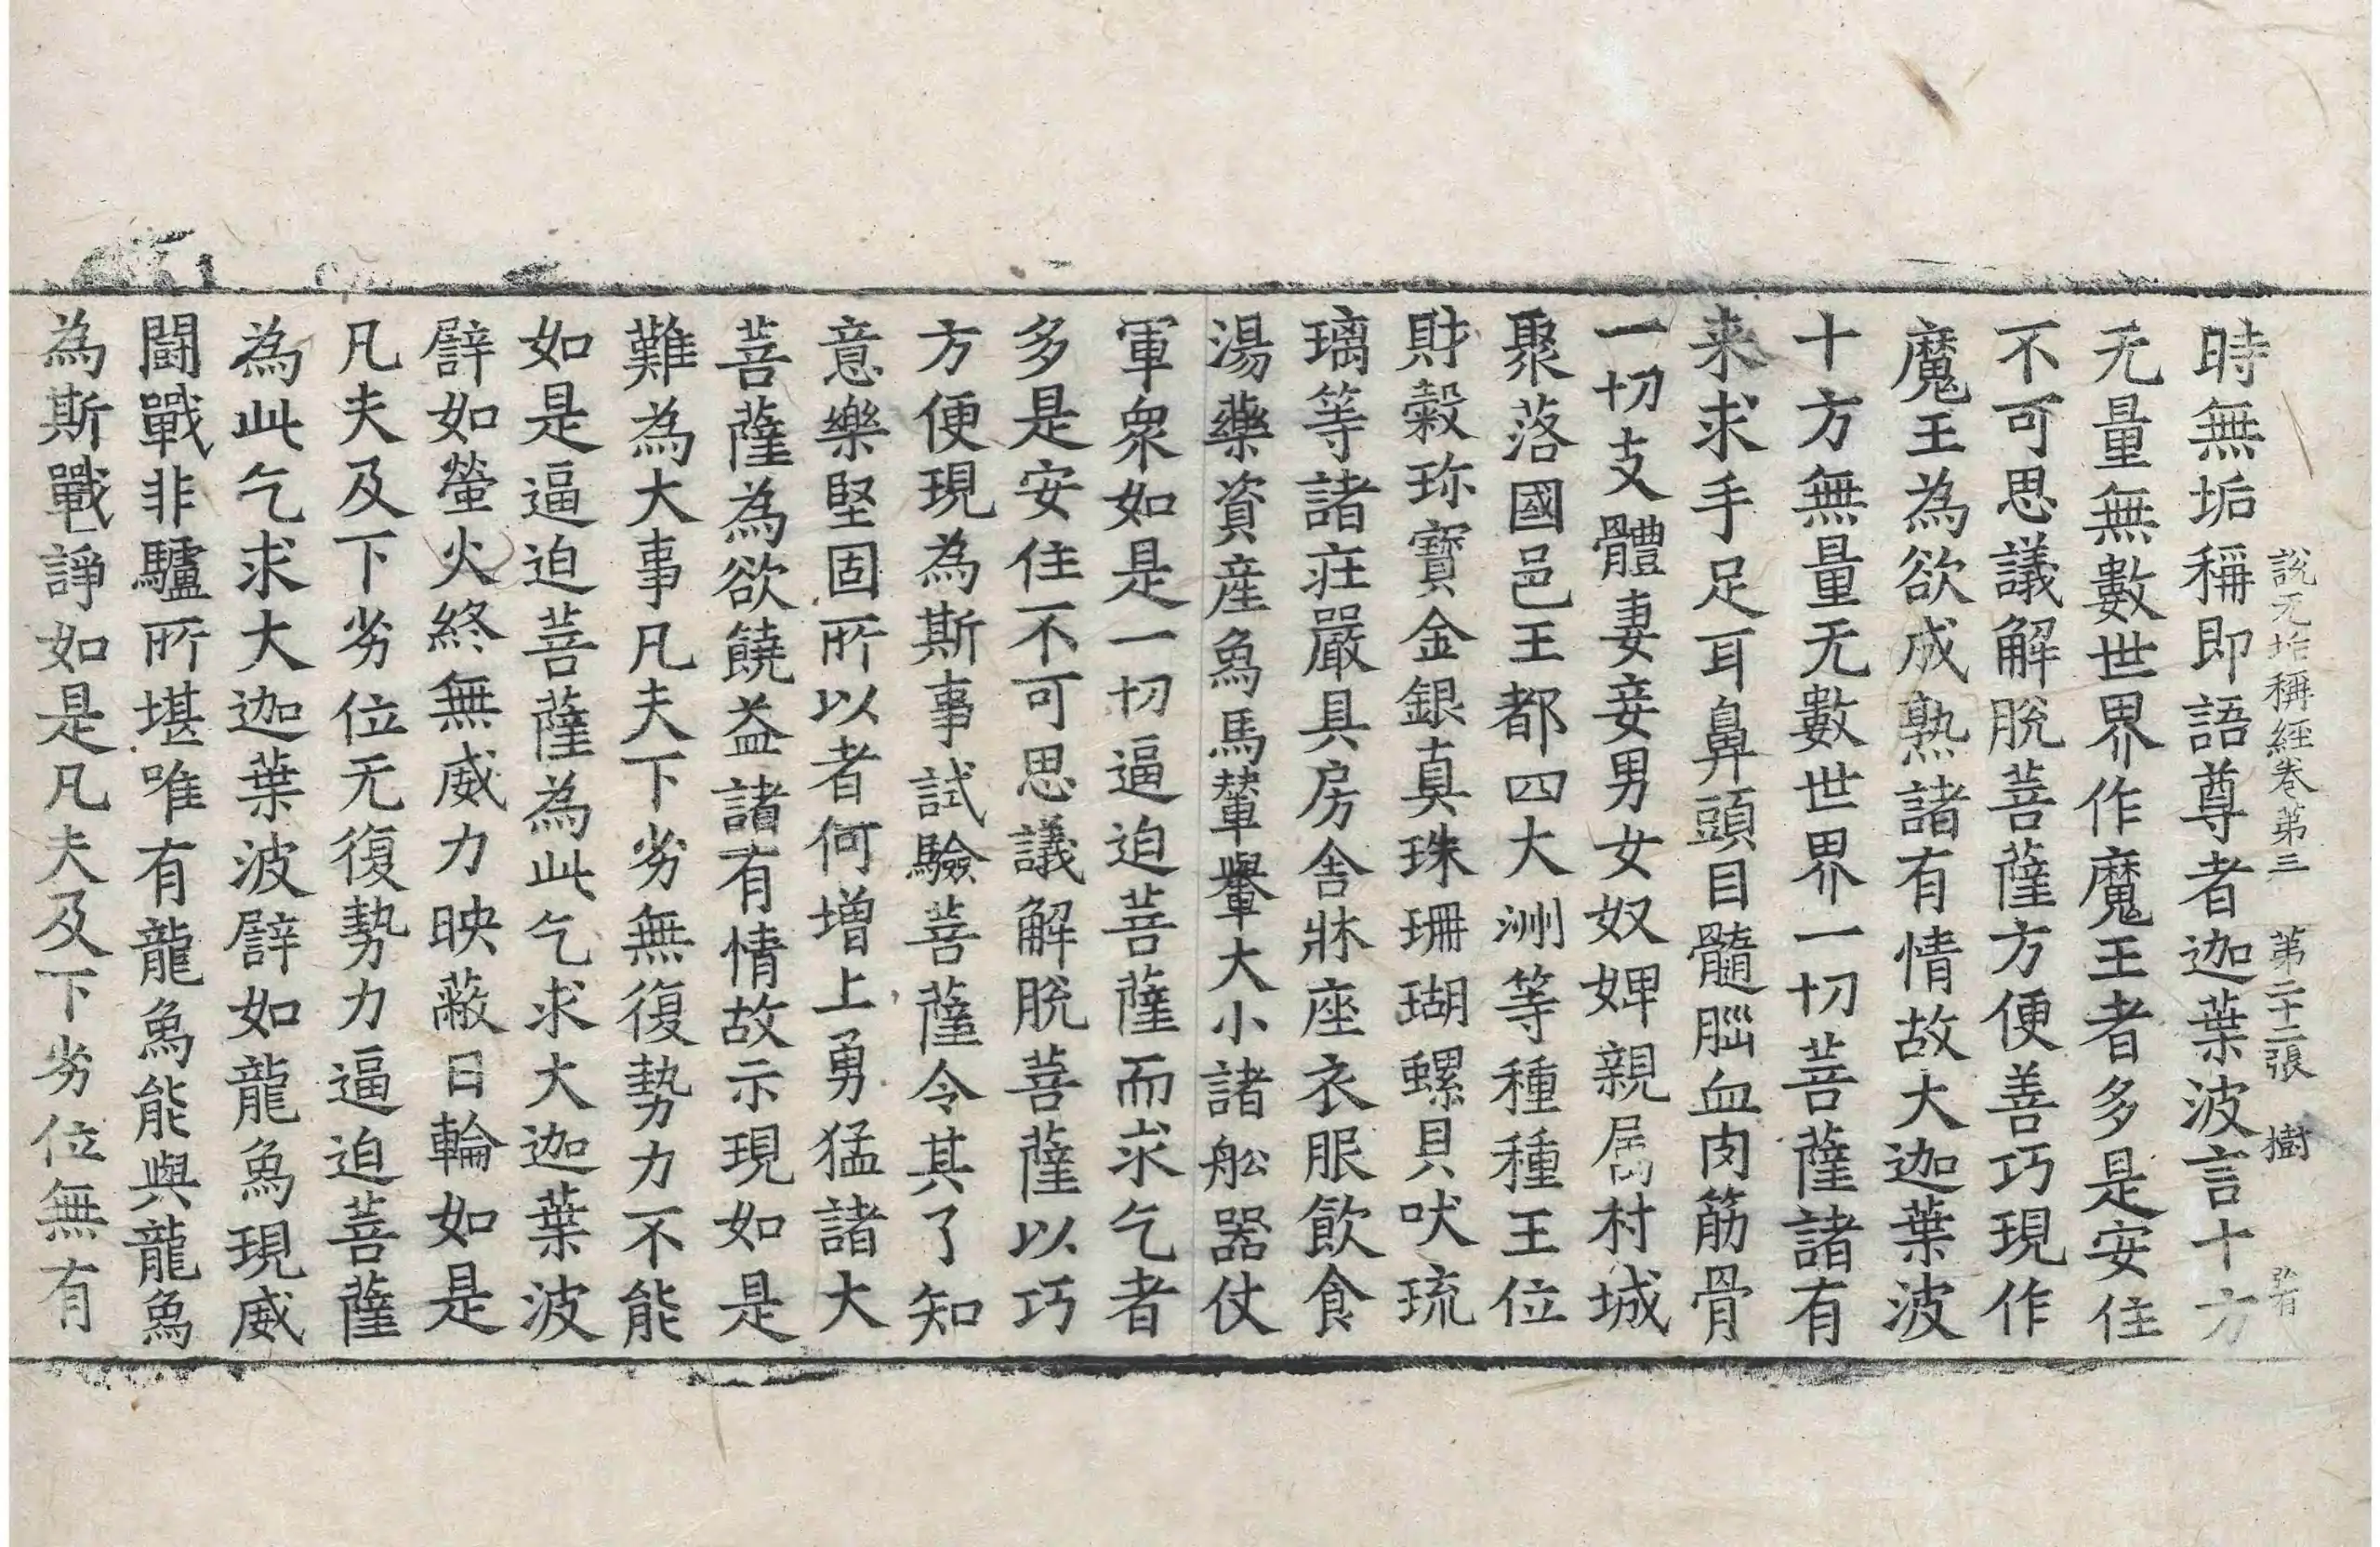 說无垢稱經卷第三 第二十二張 樹
時無垢稱即語尊者迦葉波言十方
无量無數世界作魔王者多是安住
不可思議解脫菩薩方便善巧現作
魔王為欲成熟諸有情故大迦葉波
十方無量无數世界一切菩薩諸有
来求手足耳鼻頭目髓腦血肉筋骨
一切支體妻妾男女奴婢親屬村城
聚落國邑王都四大洲等種種王位
財穀珎寶金銀真珠珊瑚螺貝吠琉
璃等諸莊嚴具房舍牀座衣服飲食
湯藥資産象馬輦轝大小諸舩器仗
軍衆如是一切逼迫菩薩而求乞者
多是安住不可思議解脫菩薩以巧
方便現為斯事試驗菩薩令其了知
意樂堅固所以者何增上勇猛諸大
菩薩為欲饒益諸有情故示現如是
難為大事凡夫下劣無復勢力不能
如是逼迫菩薩為此乞求大迦葉波
譬如螢火終無威力映蔽日輪如是
凡夫及下劣位无復勢力逼迫菩薩
為此乞求大迦葉波譬如龍象現威
鬪戰非驢所堪唯有龍象能與龍象
為斯戰諍如是凡夫及下劣位無有